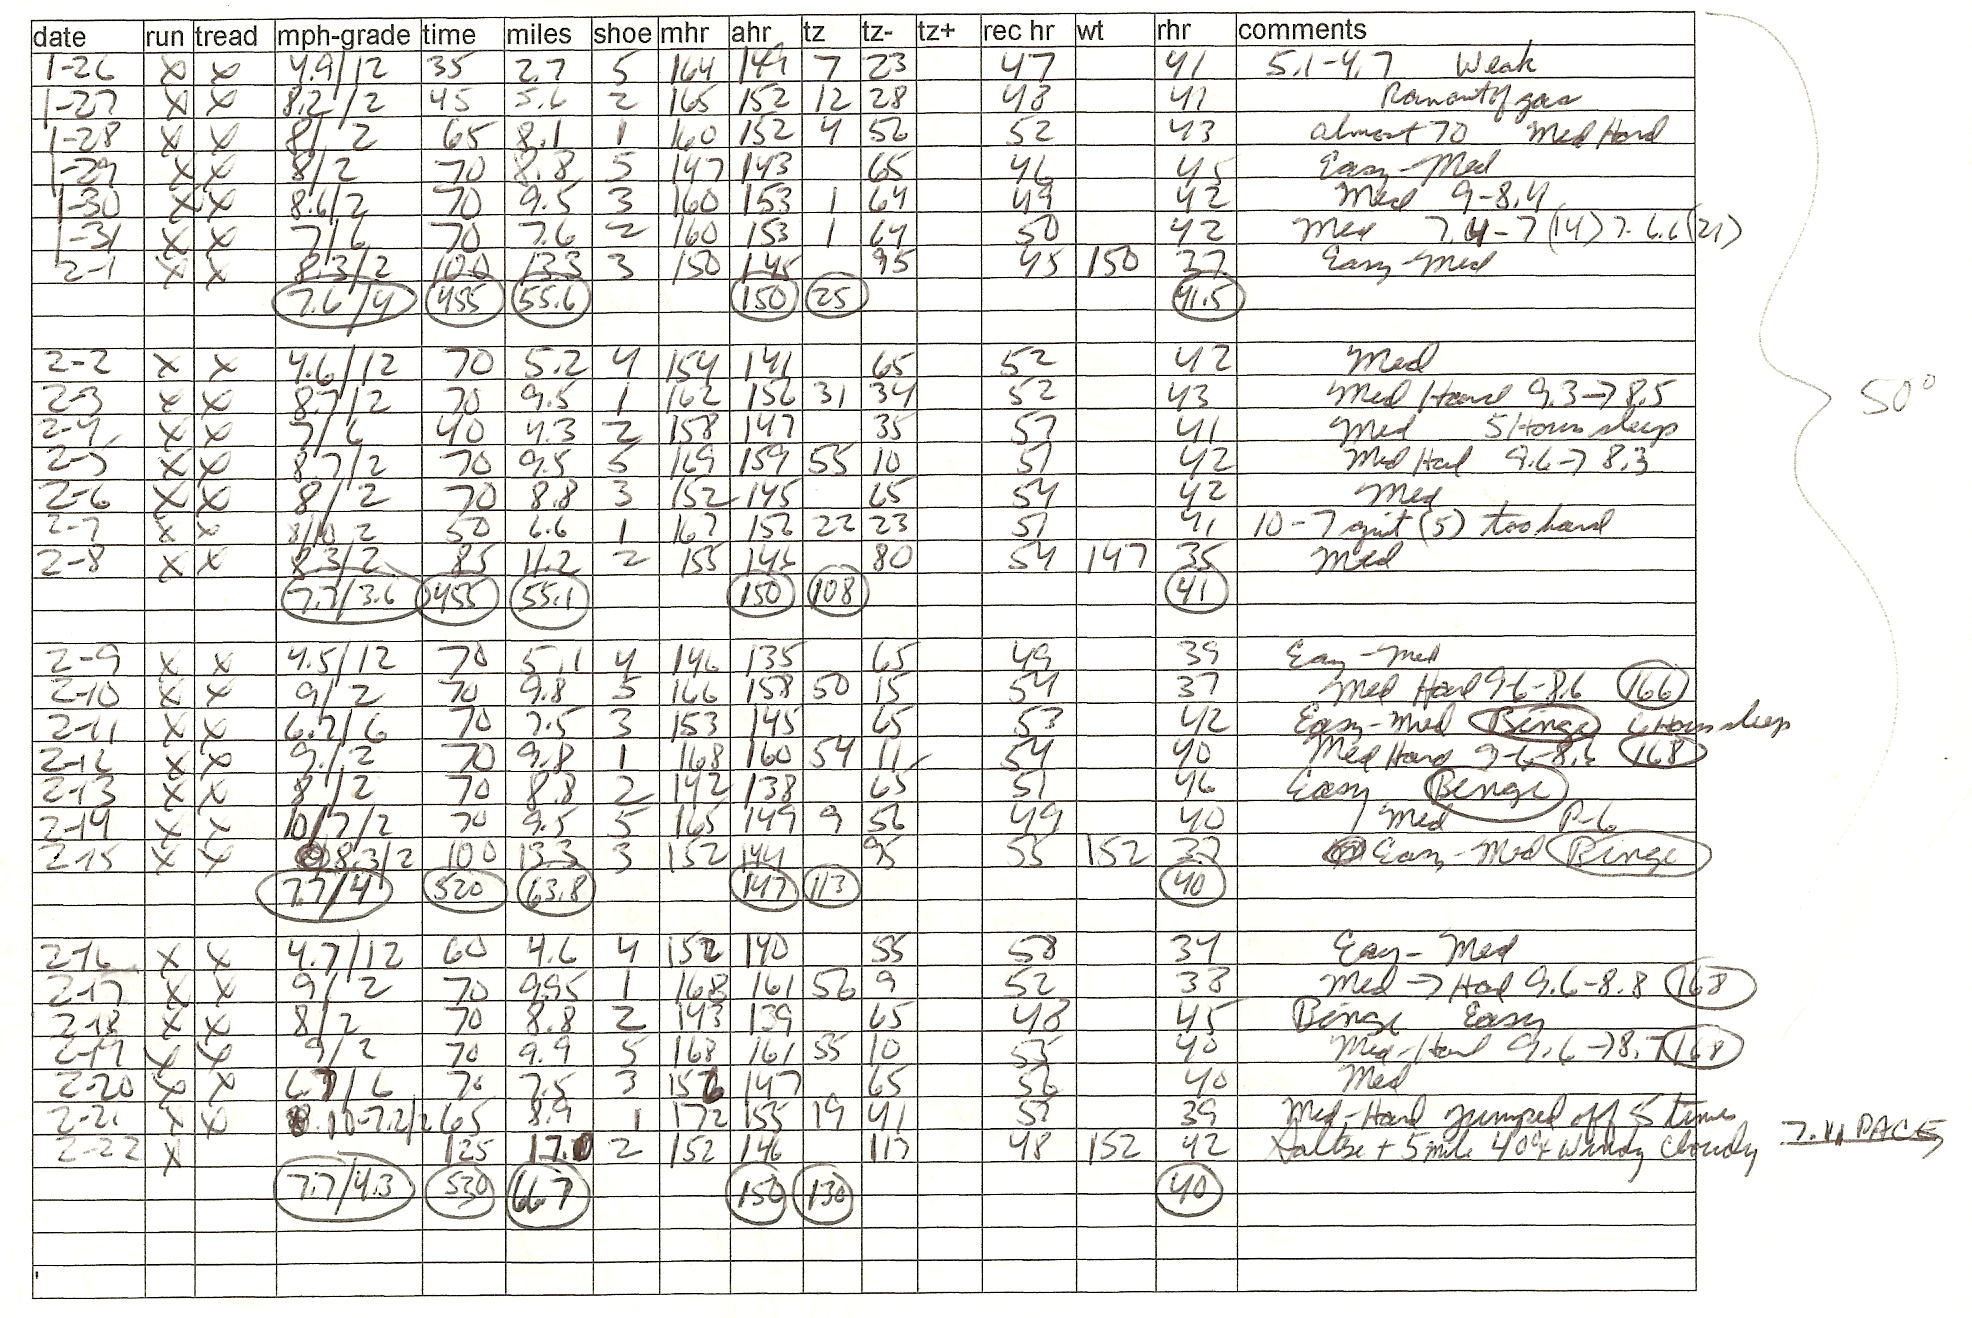 date run tread mph-grade time miles shoe mhr ahr tz tz- tz+ rec hr wt rhr comments
1-26 x x 4.9/12 35 2.7 5 164 149 7 23 47 41 5.1-4.7 Weak
1-27 x x 8.2/2 45 5.6 2 165 152 12 28 48 41 Ran out of gas
1-28 x x 8/2 65 8.1 1 160 152 4 56 52 43 almost 70 Med Hard
1-29 x x 8/2 70 8.8 5 147 143 65 46 45 Easy-Med
1-30 x x 8.6/2 70 9.5 3 160 153 1 64 49 42 Med 9-8.4
1-31 x x 7/6 70 7.6 2 160 153 1 64 50 42 Med 7.4-7(14) 7-6.6(21)
2-1 x x 8.3/2 100 13.3 3 150 145 95 45 150 37 Easy-Med
7.6/4 455 55.6 150 25 41.5
2-2 x x 4.6/12 70 5.2 4 154 141 65 52 42 Med
50°
2-3 x x 8.7/2 70 9.5 1 162 156 31 34 52 43 Med Hard 9.3→8.5
2-4 x x 7/6 40 4.3 2 158 147 35 57 41 Med 5 Hours sleep
2-5 x x 8.7/2 70 9.5 5 169 159 55 10 51 42 Med Hard 9.6→8.3
2-6 x x 8/2 70 8.8 3 152 145 65 54 42 Med
2-7 x x 8/10 2 50 6.6 1 167 152 22 23 51 41 10-7 quit (5) too hard
2-8 x x 8.3/2 85 11.2 2 155 146 80 54 147 35 Med
7.7/3.6 455 55.1 150 108 41
2-9 x x 4.5/12 70 5.1 4 146 135 65 49 39 Easy-Med
2-10 x x 9/2 70 9.8 5 166 158 50 15 54 37 Med Hard 9.6-8.6 166
2-11 x x 6.7/6 70 7.5 3 153 145 65 53 42 Easy-Med Binge 6 Hours sleep
2-12 x x 9/2 70 9.8 1 168 160 54 11 54 40 Med Hard 9.6-8.6 168
2-13 x x 8/2 70 8.8 2 142 138 65 51 46 Easy Binge
2-14 x x 10/7/2 70 9.5 5 165 149 9 56 49 40 Med P-6
2-15 x x 8.3/2 100 13.3 3 152 144 95 55 152 37 Easy-Med Binge
7.7/4 520 63.8 147 113 40
2-16 x x 4.7/12 60 4.6 4 152 140 55 58 34 Easy-Med
2-17 x x 9/2 70 9.95 1 168 161 56 9 52 38 Med→Hard 9.6-8.8 168
2-18 x x 8/2 70 8.8 2 143 139 65 48 45 Binge Easy
2-19 x x 9/2 70 9.9 5 168 161 55 10 55 40 Med-Hard 9.6→8.7 168
2-20 x x 6.7/6 70 7.5 3 156 147 65 56 40 Med
2-21 x x 10-7.2/2 65 8.9 1 172 155 19 41 57 39 Med-Hard Jumped off 5 times
2-22 x 125 17.0 2 152 146 117 48 152 42 + 5 mile 40° Windy Cloudy PACE
7.7/4.3 530 66.7 150 130 40